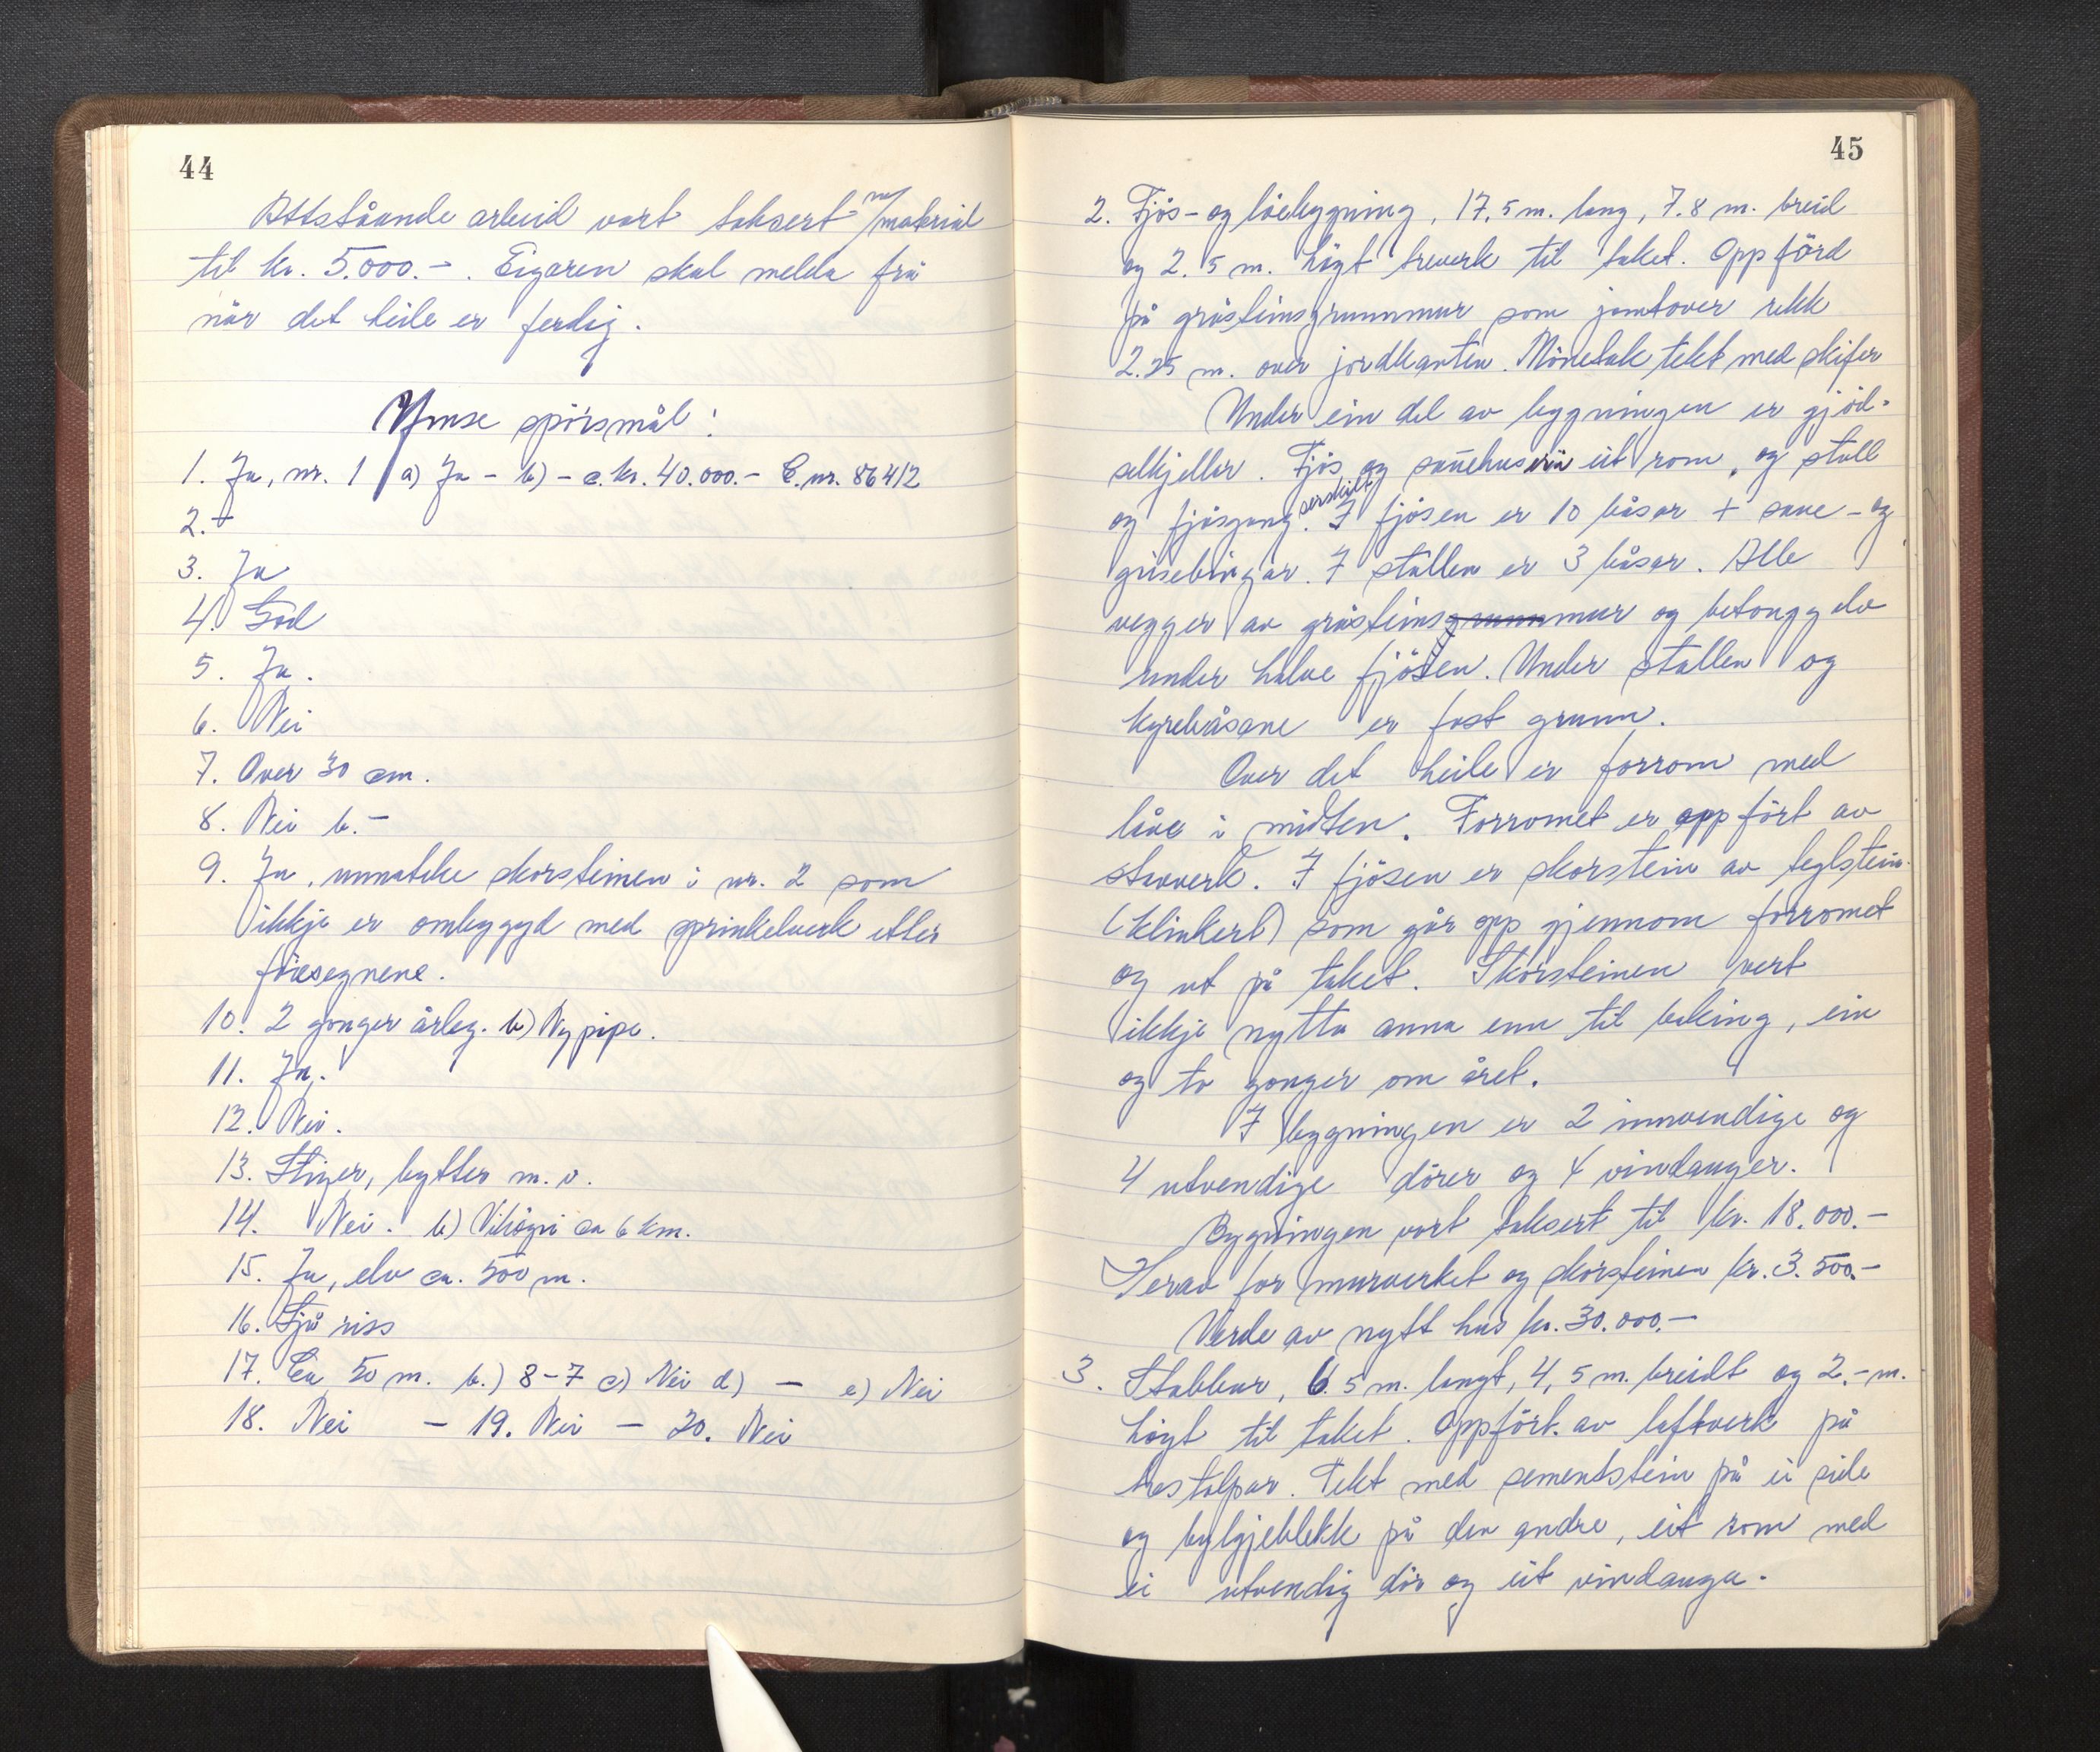 44
Attståande arbeid vart taksert m/material
til kr. 5.000.- . Eigaren skal melda frå
når det heile er ferdig.
Ymse spörsmål :
1. Ja, nr. 1 a) Ja - b) - c. kr. 40.000.- C. nr. 86412
2. -
3. Ja
4. God
5. Ja.
6. Nei
7. Over 30 cm.
8. Nei b. -
9. Ja, unnateke skorsteinen i nr. 2 som
ikkje er ombyggyd med sprinkelverk etter
föresegnene.
10. 2 gonger årleg. b) Ny pipe.
11. Ja.
12. Nei.
13. Stiger, bytter m. v.
14. Nei. b) Vikögri ca 6 km.
15. Ja, elv ca. 500 m.
16. Sjå riss
17. Ca 50 m. b.) 8-7 c) Nei d) - e) Nei
18. Nei - 19. Nei - 20. Nei
45
2. Fjös- og löebygning, 17.5 m. lang, 7.8 m. breid
og 2.5 m. högt treverk til taket. Oppförd
på gråsteinsgrunnmur som jamtover rekk
2.25 m. over jordkanten. Mönetak tekt med skifer
Under ein del av bygningen er gjöd-
selkjellar. Fjös og sauehus i eit rom, og stall
og fjösgang serskilt. I fjösen er 10 båsar + saue- og
grisebingar. I stallen er 3 båsar. Alle
vegger av gråsteinsgrunnmur og betonggolv
under halve fjösen. Under stallen og
kyrebåsane er fast grunn.
Over det heile er forrom med
låve i midten. Forromet er oppfört av
stavverk. I fjösen er skorstein av teglstein
(klinkert) som går opp gjennom forromet
og ut på taket. Skorsteinen vert
ikkje nytta anna enn til baking, ein
og to gonger om året.
I bygningen er 2 innvendige og
4 utvendige dörer og 4 vindauger.
Bygningen vart taksert til kr. 18.000.-
Herav for murverket og skorsteinen kr. 3.500.-
Verde av nytt hus kr. 30.000.-
3. Stabbur, 6.5 m. langt, 4,5 m. breidt og 2.- m.
högt til taket. Oppfört av laftverk på
trestolpar. Tekt med sementstein på ei side
og bylgjeblekk på den andre, eit rom med
ei utvendig dör og eit vindauga.